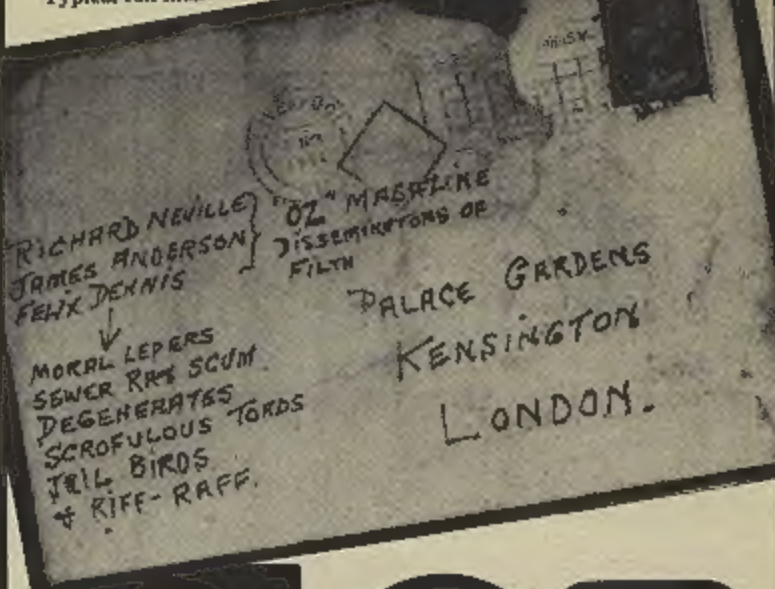 RICHARD NEVILLE
JAMES ANDERSON
FELIX DENNIS
"OZ" MAGAZINE
DISSEMINATORS OF
FILTH
MORAL LEPERS
SEWER RAT SCUM
DEGENERATES
SCROFULOUS TORDS
JAIL BIRDS
& RIFF-RAFF.
PALACE GARDENS
KENSINGTON
LONDON.